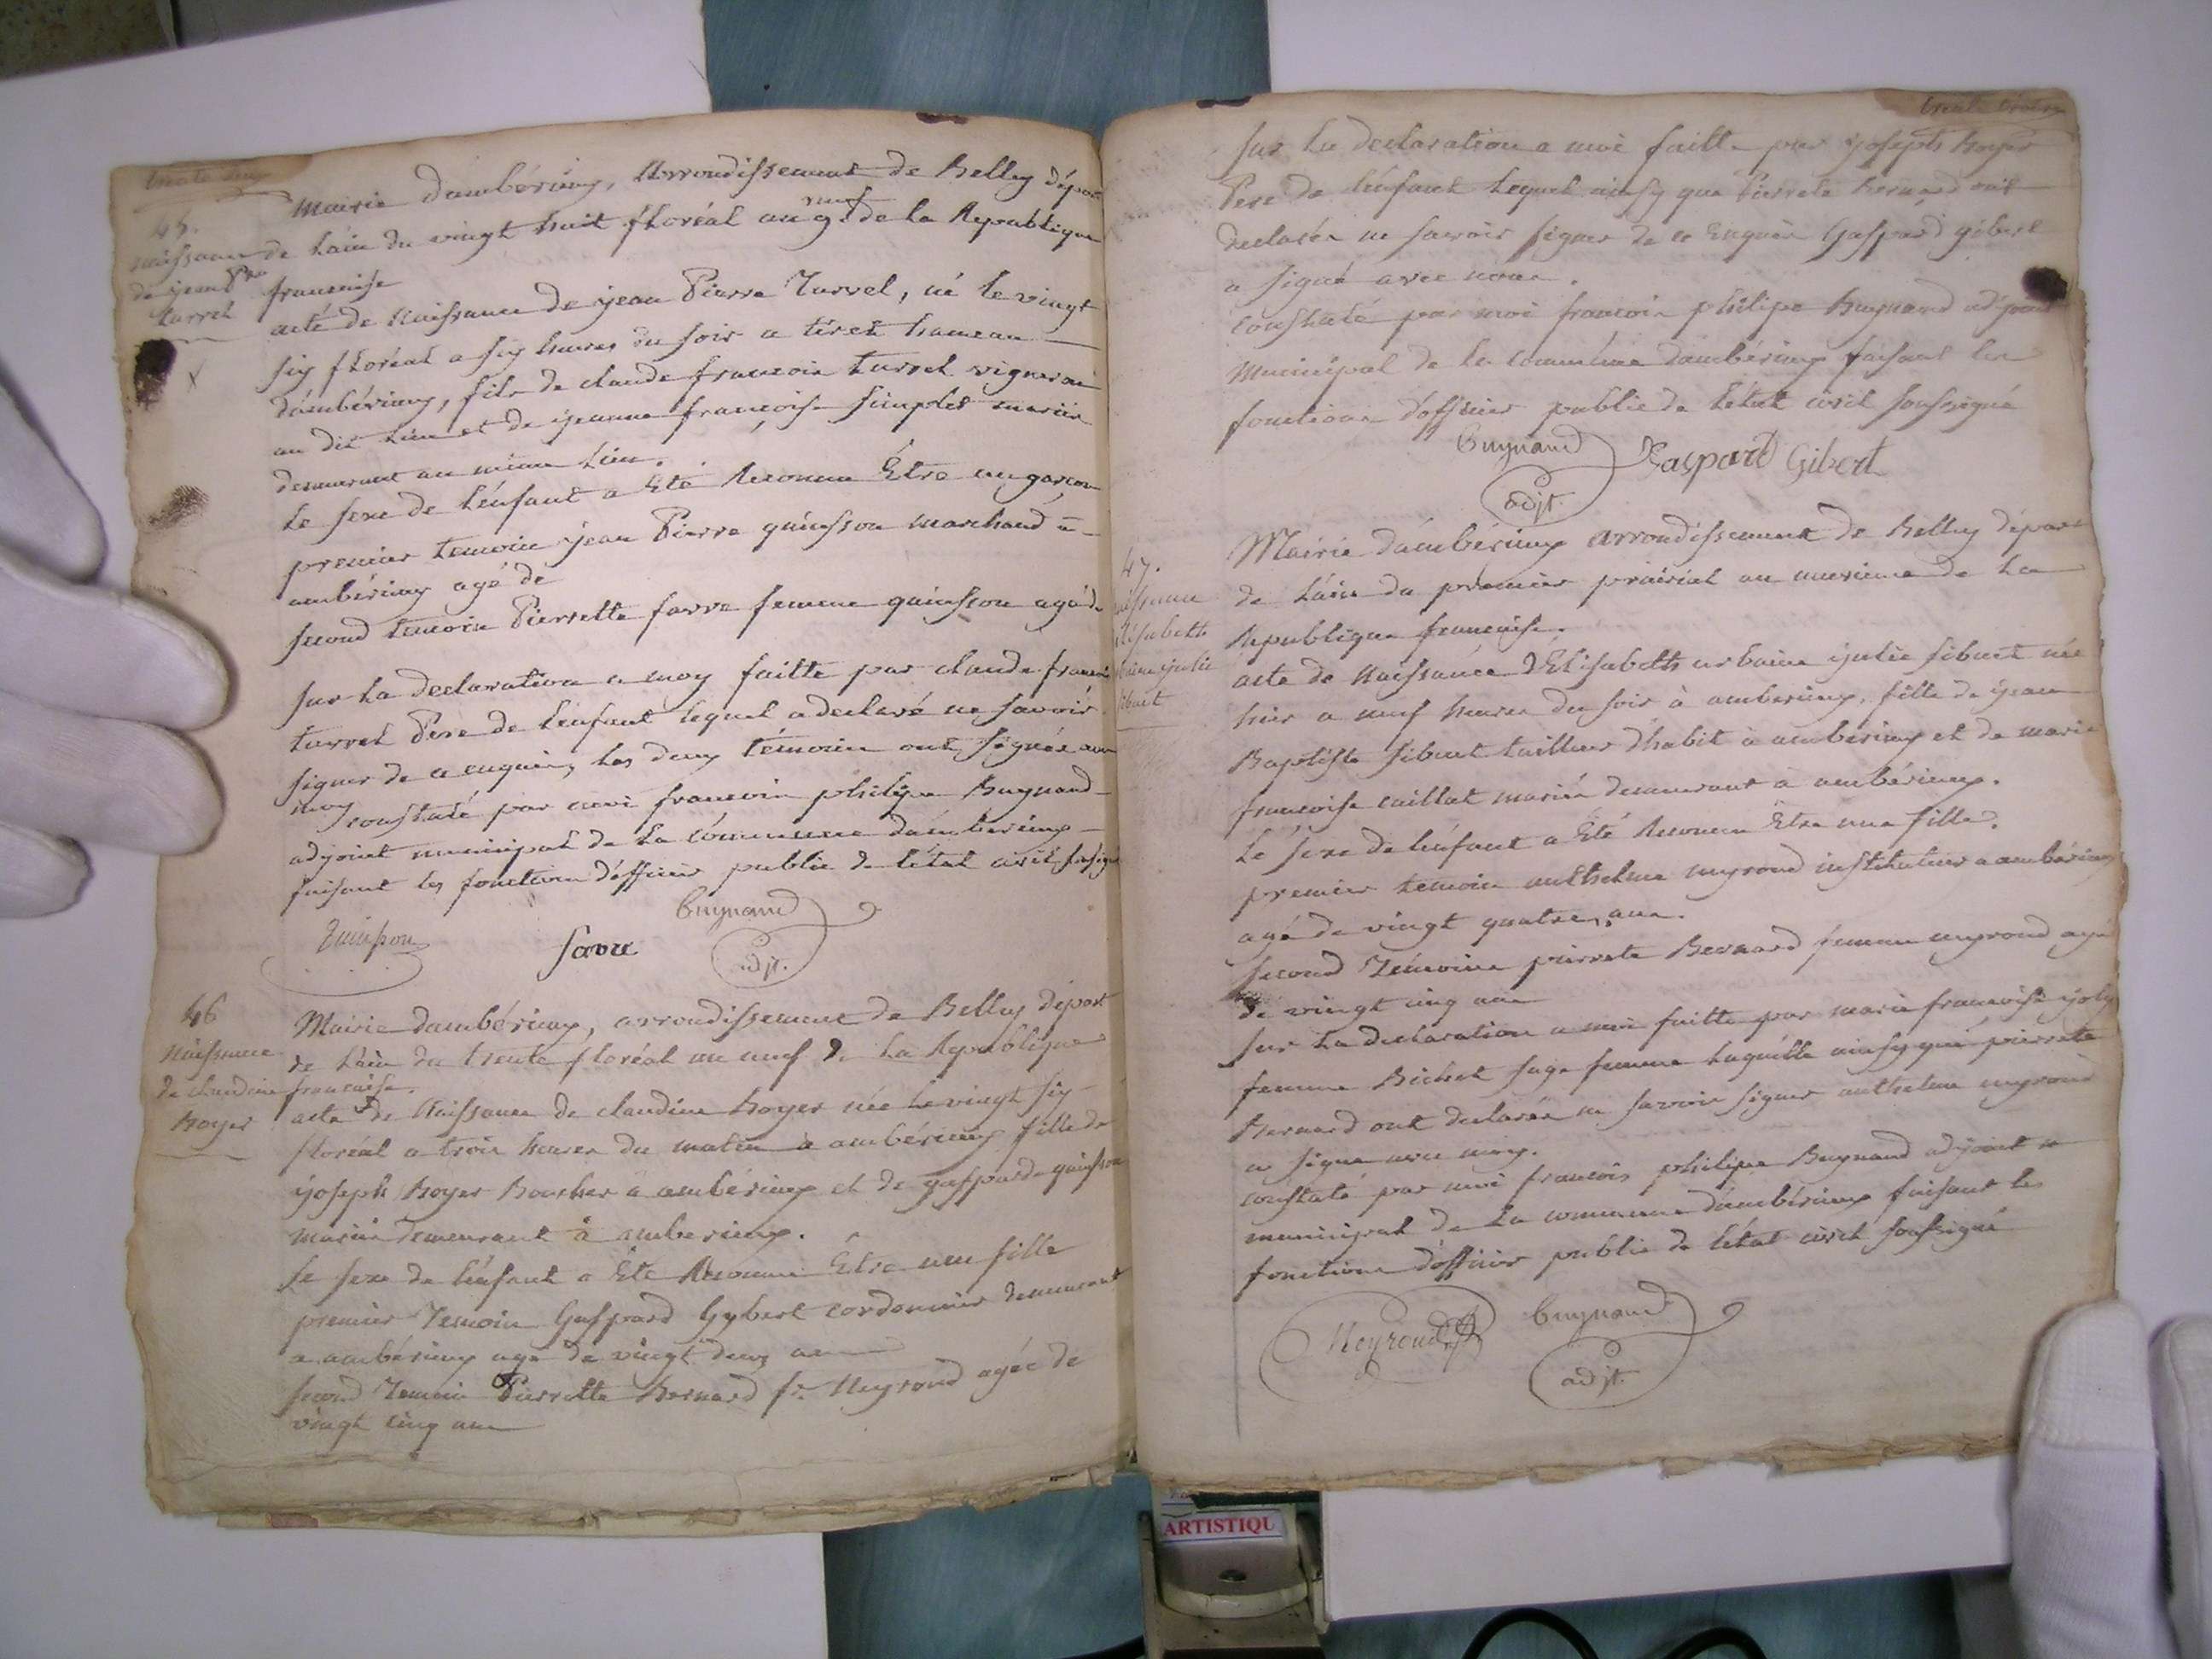 trente deux
45.
naissance
de jean Pre
turrel
Mairie dambérieux, Arrondissement de Belley dépar
de Láin du vingt huit floréal an 9.e neuf de la Republique
francaise
acté de Naissance de jean Pierre Turrel, né le vingt
six floréal a six heures du soir a tiret hameau
dámbérieux, fils de claude francois turrel vigneron
au dit lieu et de jeanne françoise simplet mariés
demeurant au même lieu.
le sexe de lénfant a Eté Reconnu Être un garcon
premier temoin jean Pierre quinsson marchand a
ambérieux agé de
second temoin Pierrette favre femme quinsson agé de
sur la declaration a moy faitte par claude francois
turrel Pere de lénfant lequel a declaré ne savoir
signer de ce enquis, les deux témoins ont signés avec
moy
constaté par moi francois philipe Buynand
adjoint municipal de la commune dámberieux
faisant les fonctions dófficier public de létat civil sousigné
Quinsson
favre
Buynand
adjt.
46
Naissance
de claudine
Boyer
Mairie dambérieux, arrondissement de Belley départ
de Láin du trente floréal an neuf de la Republique
francaise.
acte de Naissance de claudine Boyer née le vingt six
floréal a trois heures du matin à ambérieux fille de
joseph Boyer Boucher a ambérieux et de gasparde quinsson
mariés demeurant à amberieux.
le sexe de lénfant a Eté Reconnu Être une fille
premier Temoin Gaspard Gybert cordonnier demeurant
a ambérieux agé de vingt deux ans
second Temoin Pierrette Bernard fe. Meyrond agée de
vingt cinq ans
trente trois
sur la declaration a moi faitte par joseph Boyer
Pere de lénfant lequel ainsy que Pierrete Bernard ont
declarés ne savoir signer de ce Enquis Gaspard gibert
a signé avec nous.
constaté par moi francois philipe Buynand adjoint
municipal de la commune dámbérieux faisant les
fonctions dófficier public de létat civil soussigné
Buynand
adjt.
Gaspard Gibert
47.
naissance
Elisabeth
urbaine julie
sibuet
Mairie dámbérieux arrondissement de Belley départ
de Láin du premier prairial an neuvieme de la
Republique francaise.
acte de Naissance d'Elisabeth urbaine julie sibuet née
hier a neuf heures du soir à amberieux, fille de jean
Baptiste sibuet tailleur d'habit à ambérieux et de marie
francoise caillat mariés demeurant à ambérieux.
Lé sexe de lénfant a Eté Reconnu Etre une fille.
premier temoin anthelme meyrond instituteur a ambérieux
agé de vingt quatre ans.
second Témoin pierrete Bernard femme meyrond agé
de vingt cinq ans
sur la declaration a moi faitte par marie francoise joly
femme Bichet sage femme laquélle ainsy que pierrete
Bernard ont declarés ne savoir signer anthelme meyrond
a signé avec moy.
constaté par moi francois philipe Buynand adjoint
municipal de la commune dámbérieux faisant les
fonctions dófficier public de létat civil soussigné
Meyrond
Buynand
adjt.
ARTISTIQU